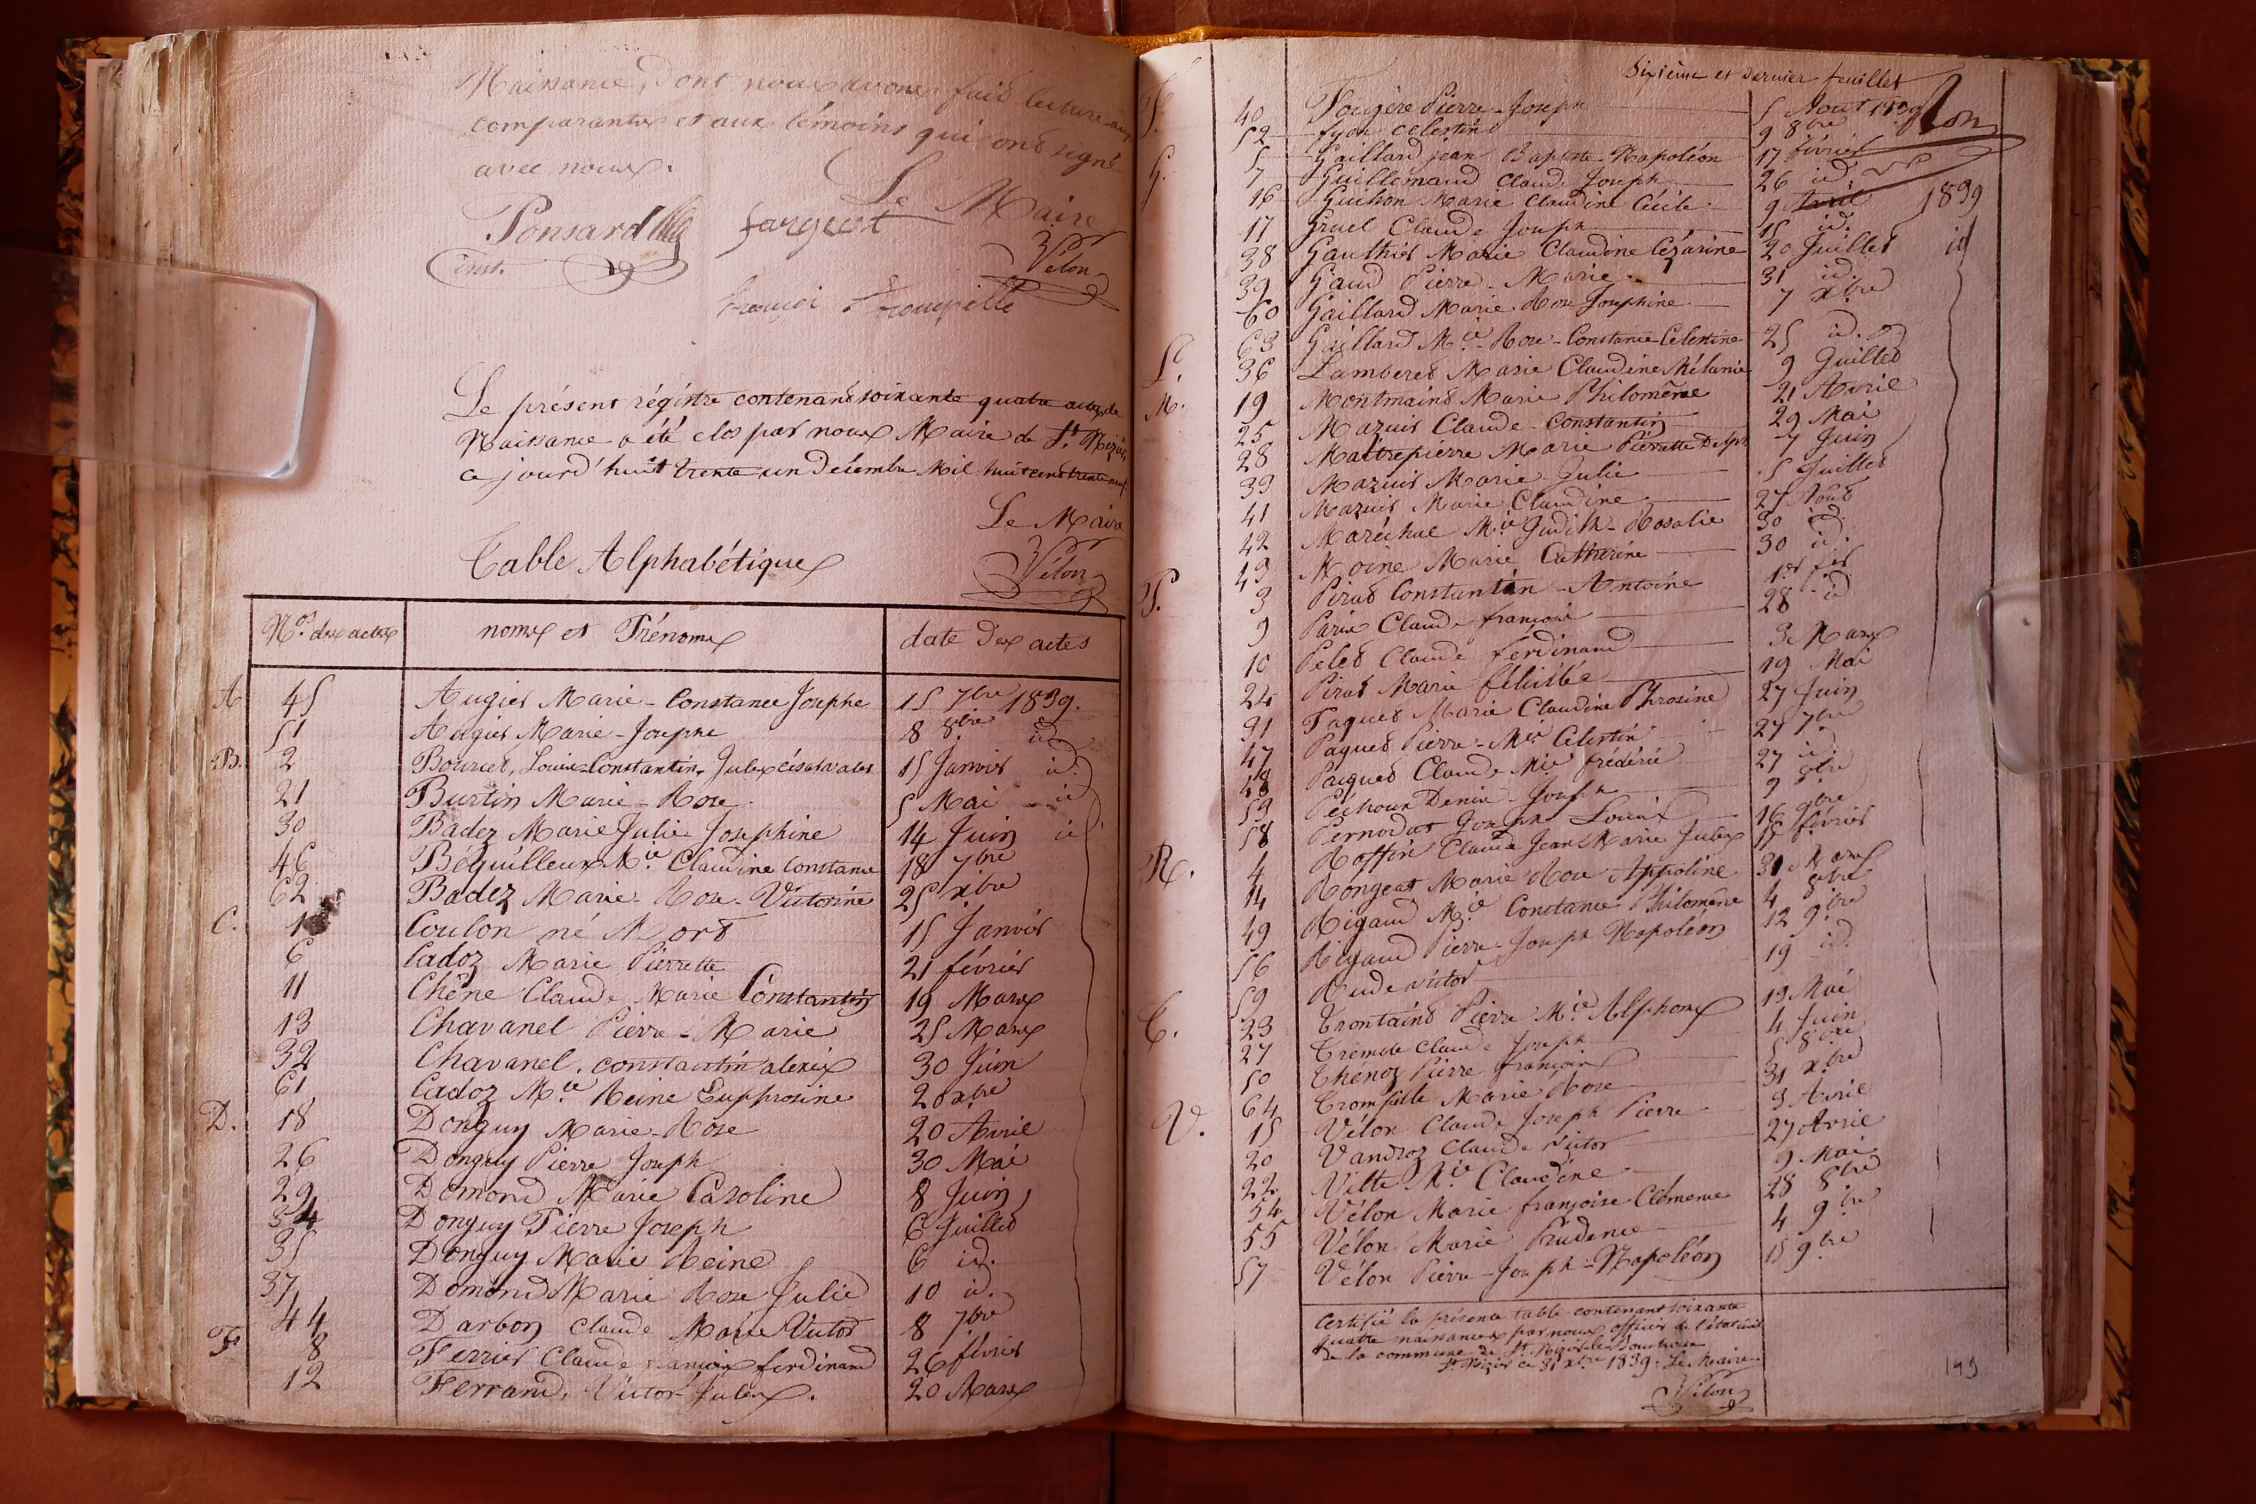 Naissance, dont nous avons fait lecture aux
comparants et aux témoins qui ont signé
avec nous.
Le Maire
Ponsard fargeot
inst. Vélon
françois trompille
Le présent régistre contenant soixante quatre actes de
Naissance a été clos par nous Maire de St. Nizier,
ce jourd'huit trente un Décembre Mil huit cent trente neuf
Le Maire
Table Alphabétique Vélon
Nos. des actes noms et Prénoms date des actes
A 45 Augier Marie-Constance Josephe 15 7bre 1839.
51 Augier Marie-Josephe 8 8bre id.
B. 2 Bourcet, Louis-Constantin, Jules 15 Janvier id.
21 Burtin Marie-Rose 5 Mai id
30 Badez Marie Julie Josephine 14 Juin id
46 Béquilleux Mie. Claudine Constance 18 7bre
62 Badez Marie Rose Victorine 25 xbre
C. 1 Coulon né Mort 15 Janvier
6 Cadoz Marie Pierrette 21 février
11 Chêne Claude Marie Constantin 19 Mars
13 Chavanel Pierre-Marie 25 Mars
32 Chavanel, constantin alexis 30 Juin
61 Cadoz Mie Reine Euphrosine 20 xbre
D. 18 Donguy Marie-Rose 20 Avril
26 Donguy Pierre Joseph 30 Mai
29 Domond Marie Caroline 8 Juin
34 Donguy Pierre Joseph 6 Juillet
35 Donguy Marie Reine 6 id.
37 Domond Marie Rose Julie 10 id.
44 Darbon Claude Marie Victor 8 7bre
F 8 Ferrier Claude françois ferdinand 26 février
12 Ferrand, Victor-Jules. 20 Mars
Sixième et dernier feuillet
F. 40 Fougère Pierre-Joseph 5 Aout 1839 Vélon
52 fyon celestine 9 8bre
G. 5 Gaillard jean Baptiste-Napoléon 17 février
7 Guillemaud Claude Joseph 26 id.
16 Guichon Marie Claudine Cécile 9 Avril 1839
17 Gruel Claude Joseph 15 id.
38 Gauthier Marie Claudine Cézarine 20 Juillet id
39 Gaud Pierre-Marie 31 id.
60 Gaillard Marie Rose Josephine 7 xbre
63 Gaillard Mie. Rose-Constance-Celestine 25 id.
L. 36 Lamberet Marie Claudine Mélanie 9 Juillet
M. 19 Montmaint Marie Philomène 21 Avril
25 Mazuir Claude-Constantin 29 Mai
28 Maitrepierre Marie Pierrette Delph 7 Juin
33 Mazuir Marie Julie 5 Juillet
41 Mazuir Marie Claudine 27 Août
42 Maréchal Mie Judith-Rosalie 30 id.
43 Moine Marie Catherine 30 id.
P. 3 Pirat Constantin-Antoine 1er fer
9 Paris Claude françois 28 id
10 Pelet Claude ferdinand 3 Mars
24 Pirat Marie félicité 19 Mai
31 Paquet Marie Claudine Phrosine 27 Juin
47 Paquet Pierre-Mie Celestin 27 7bre
48 Paquet Claude Mie frédéric 27 id.
53 Péchoux Denis-Joseph 9 8bre
58 Pernodat Joseph Louis 16 9bre
R. 4 Roffin Claude Jean Marie Jules 15 février
14 Rongeat Marie Rose Appoline 31 Mars
49 Rigaud Mie. Constance Philomène 4 8bre
56 Rigaud Pierre Joseph Napoléon 12 9bre
59 Rude victor 19 id.
T. 23 Trontaint Pierre Mie. Alphonse 19 Mai
27 Claude Joseph 4 Juin
50 Thenoz Pierre françois 5 8bre
64 Trompille Marie Rose 31 xbre
V. 15 Vélon Claude Joseph Pierre 3 Avril
20 Vandroz Claude Victor 27 Avril
22 Vitte Mie Claudine 9 Mai
54 Vélon Marie françoise-Clémence 28 8bre
55 Vélon Marie Prudence 4 9bre
57 Vélon Pierre-Joseph-Napoléon 15 9bre
Certifié la présente table contenant soixante
quatre naissances par nous officier de l'état civil
De la commune de St. Nizier le Bouchoux
St. Nizier ce 31 xbre 1839. Le Maire
Vélon
149